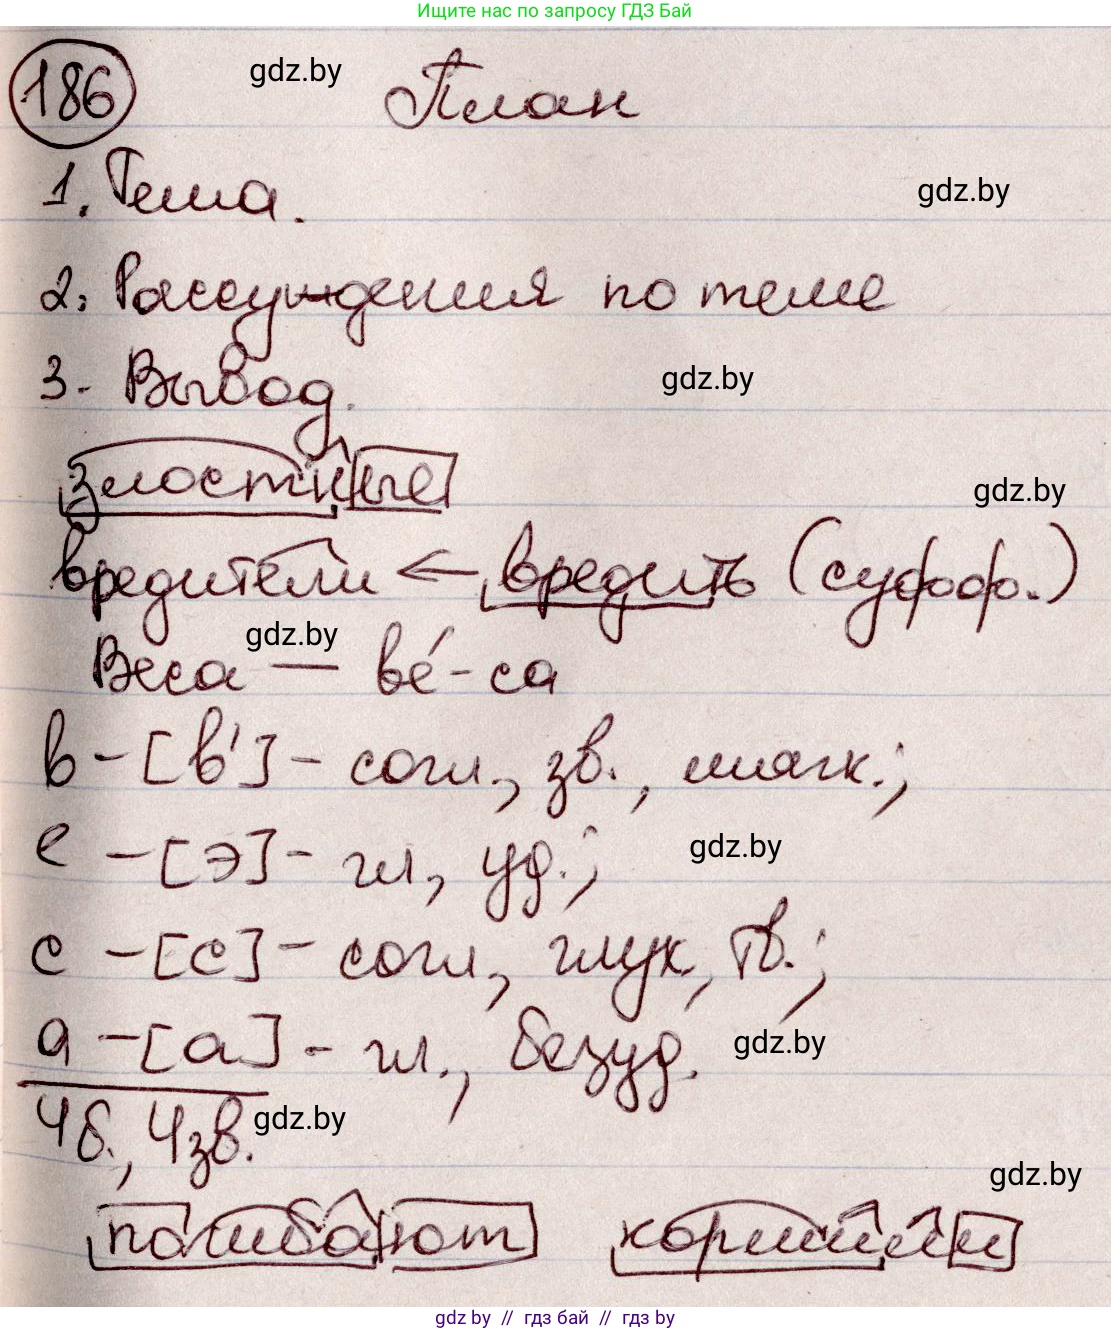 Ищите нас по запросу ГДЗ Бай
186 gdz.by План
1. Тема. gdz.by
2. Рассуждения по теме
3. Вывод. gdz.by
злостные gdz.by
вредители ← вредить (суффф.)
gdz.by
Веса — ве́-са
в - [в'] - согл., зв., мягк.;
е - [э] - гл, уд.; gdz.by
с - [с] - согл., глух, тв.;
а - [а] - гл., безуд. gdz.by
4 б., 4 зв. gdz.by
gdz.by
погибают кормили
gdz.by // гдз бай // гдз by